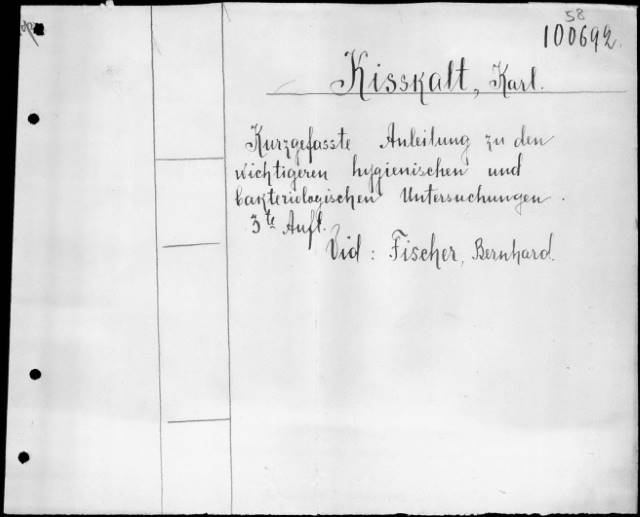 58
100692.
Kisskalt, Karl.
Kurzgefasste Anleitung zu den
wichtigeren hygienischen und
bakteriologischen Untersuchungen.
3te Aufl.
Vid: Fischer, Bernhard.